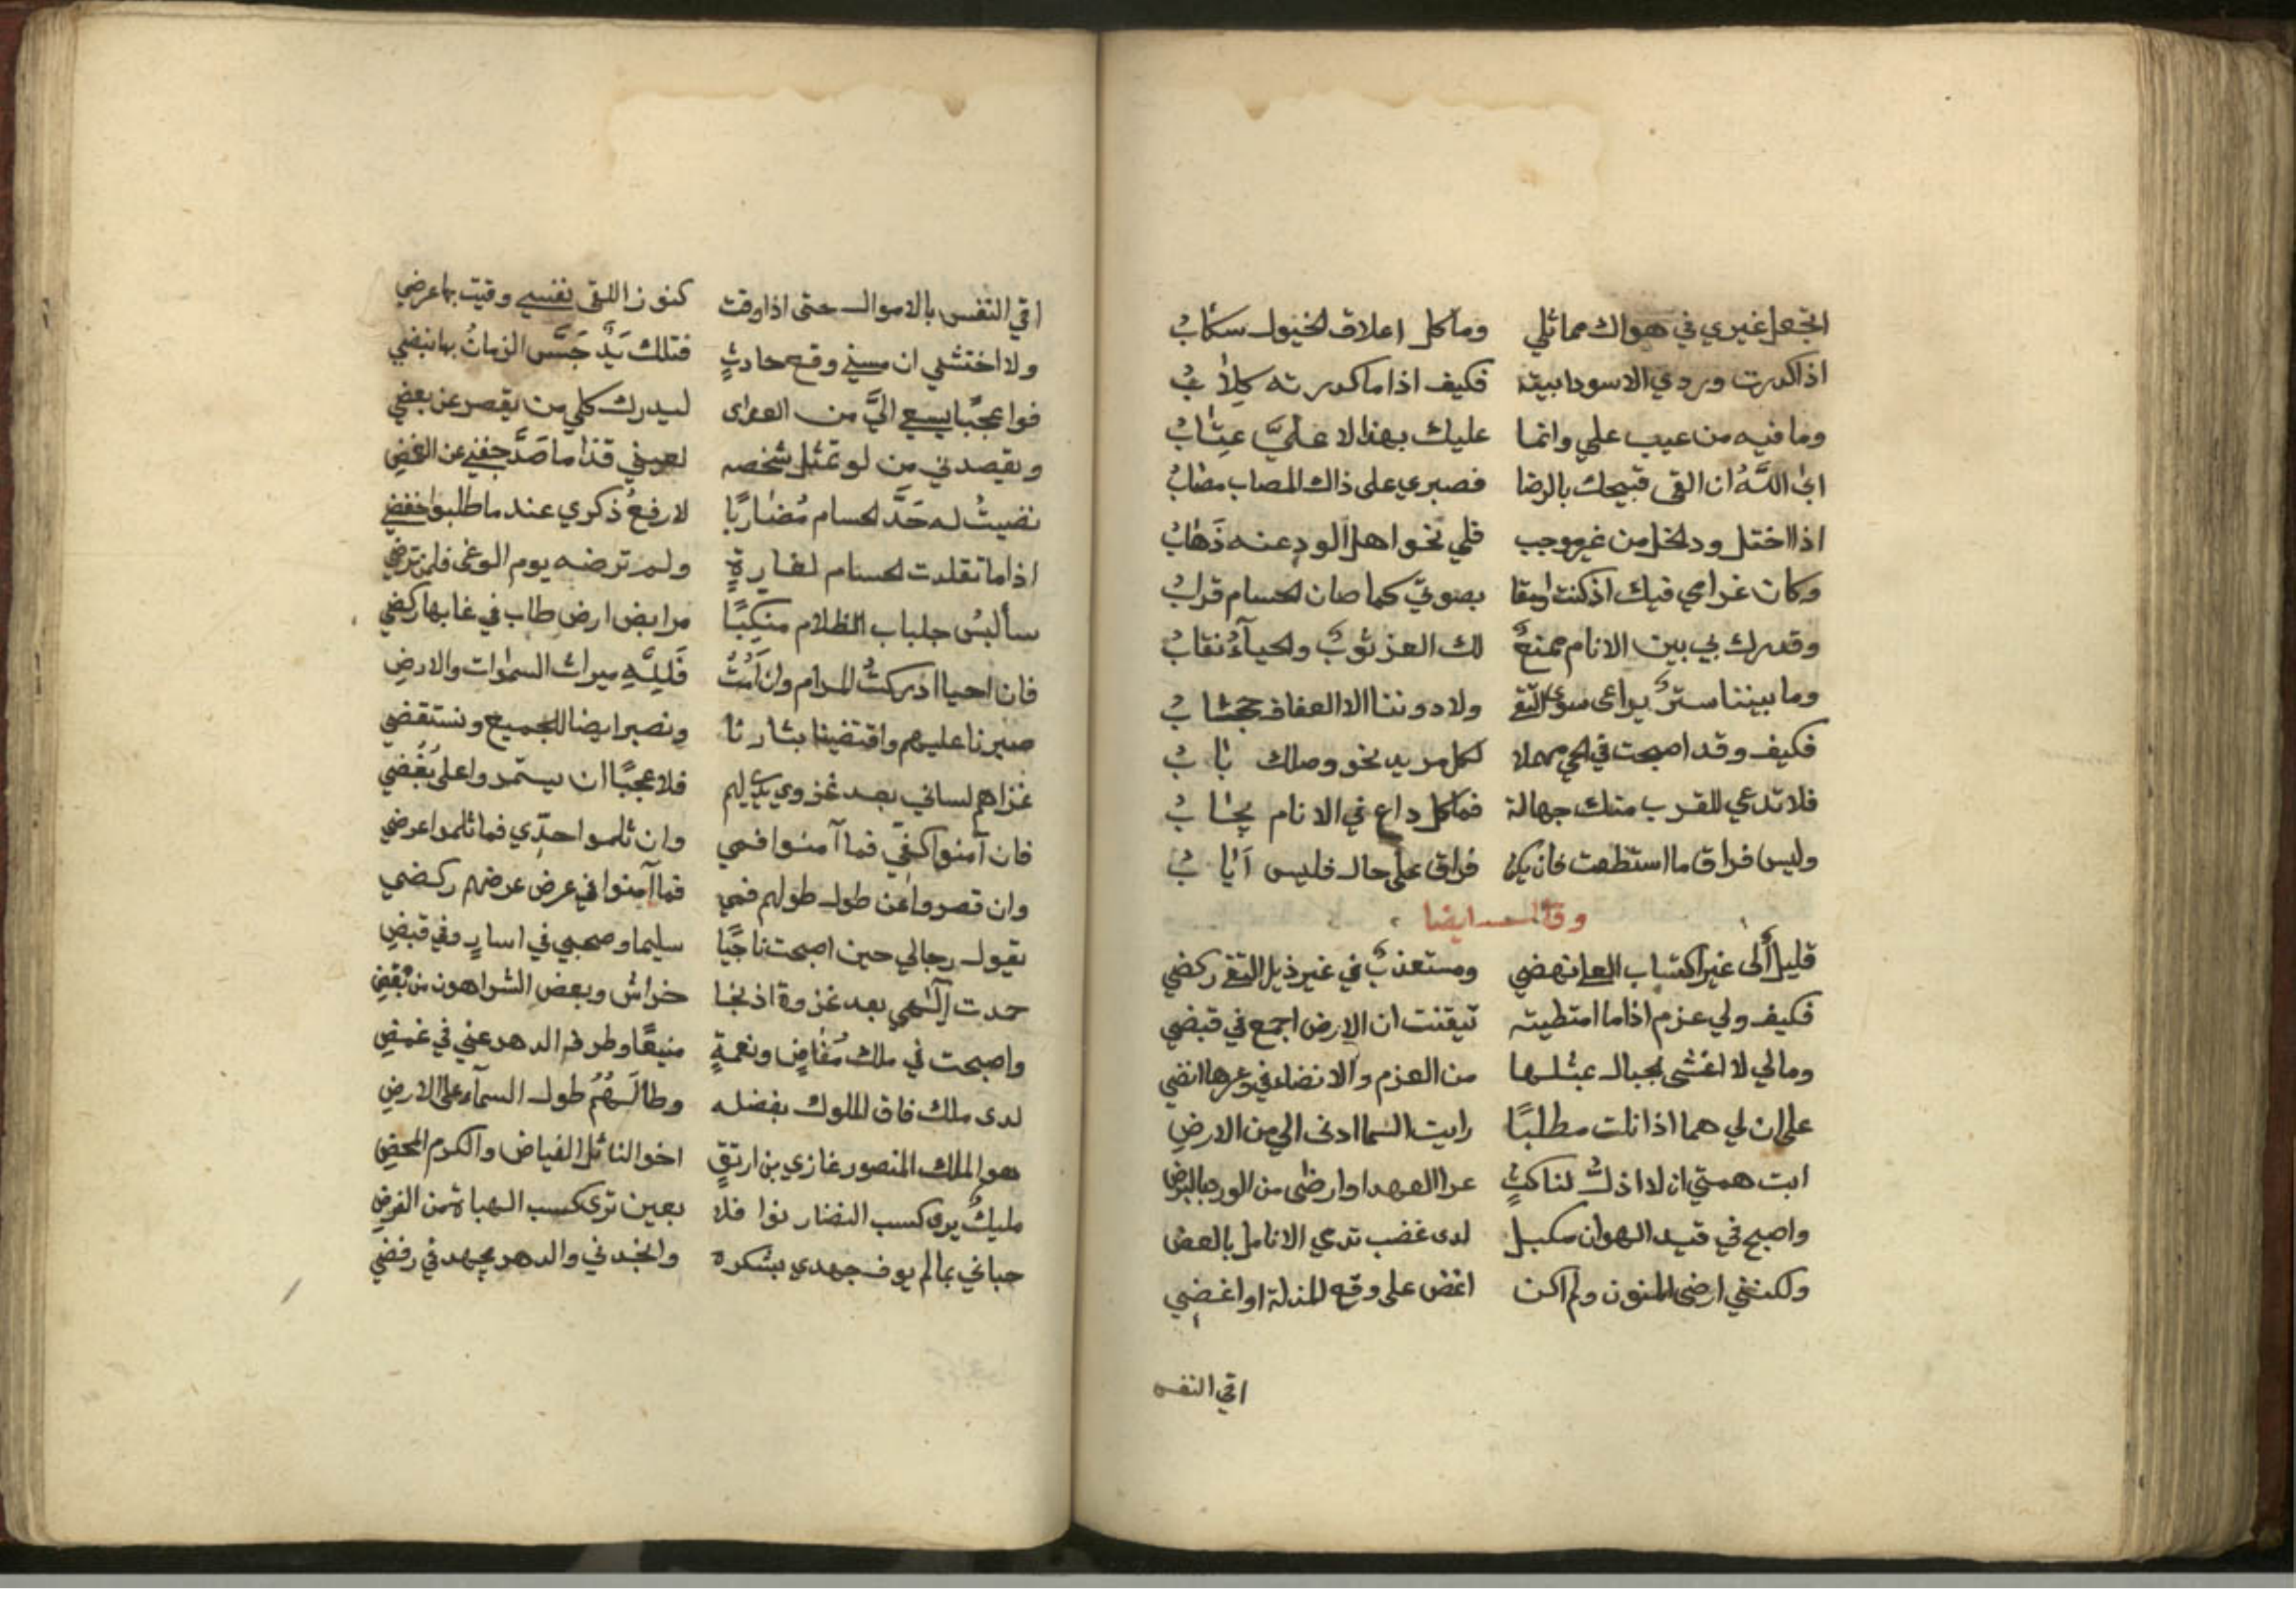 اتجعل غيري في هواك مماثلي وما كل اعلاق الخيول سكاب
اذا كدرت وردي الاسود ابيته فكيف اذا ما كدرته كلاب
وما فيه من عيب علي وانما عليك بهذا لا عليَّ عِتَابُ
ابى اللَّهُ ان القى قبيحك بالرضا فصبري على ذاك المصاب مصابُ
اذا اختل ود الخل من غير موجب فلي نحو اهل الود عنه ذَهَابُ
وكان غرامي فيك اذ كنت بصونيَ كما صان الحسام قرابُ
وقدرك بي بين الانام ممنعٌ لك العز ثوبٌ والحيآءُ نقابُ
وما بيننا سترٌ يراعى سوى التقى ولا دوننا الا العفاف حجابُ
فكيف وقد اصبحت في الحي مهملا لكل مريد نحو وصلك بابُ
فلا تدعي للقرب منك جهالة فما كل داع في الانام يجابُ
وليس فراق ما استطعت فان يكن فراق على حال فليس اَيابُ
وقال ايضا
قليلٌ الى غير اكتساب العلى نهضي ومستعذبٌ في غير ذيل التقى ركضي
فكيف ولي عزم اذا ما امتطيته تيقنت ان الارض اجمع في قبضي
ومالي لا اغشى الجبال بمثلها من العزم والانضاء في وعرها انضي
على ان لي هما اذا نلت مطلبًا رايت السما ادنى الي من الارضِ
ابت همتي ان لا اذلُّ لناكثٍ عرا العهد او ارضى من الورد بالبرضِ
واصبح في قيد الهوان مكبل لدى غضب تدمي الانامل بالعض
ولكنني ارضى المنون ولم اكن اغض على وقع المذلة او اغضي
اقي النفس
اقي النفس بالاموال حتى اذا وقت كنوز اللقى نفسي وقيت بها عرضي
ولا اختشي ان مسني وقع حادثٍ فتلك يَدٌ جَسَّ الزمانُ بها نبضي
فوا عجبًا يسعى اليَّ من العدى ليدرك كلي من يقصر عن بعضي
ويقصدني من لو تمثل شخصه لعيني قذا ما صَدَّ جفني عن الغمضِ
نضيتُ له حَدَّ الحسام مُضاربًا لارفعُ ذكري عند ما طلبوا خفضي
اذا ما تقلدت الحسام لغارةٍ ولم ترضه يوم الوغى فلمن ترضي
سأَلبسُ جلباب الظلام منكبًا مرابض ارض طاب في غابها ركضي
فان احيا ادركتُ المرام وان اَمُتُّ فَلِلَّهِ ميراث السموات والارضِ
صبرنا عليهم واقتضينا بثارنا ونصبر ايضا للجميع ونستقضي
غزاهم لساني بعد غزوي لهم فلا عجبًا ان يستمروا على بُغضي
فان آمنوا كفيّ فما آمنوا فمي وان ثلموا حدِّي فما ثلموا عرضي
وان قصروا عن طول طولهم فمي فما آمنوا في عرض عرضهم ركضي
يقول رجالي حين اصبحت ناجيًا سليما وصحبي في اسارٍ وفي قبضِ
حمدت آلهي بعد غزوة اذ نجا خراش وبعض الشر اهون من بعضِ
واصبحت في ملك مُفاضٍ ونعمةٍ منيعًا وطرف الدهر عني في غمضِ
لدى ملك فاق الملوك بفضله وطالَهُمُ طول السمآء على الارضِ
هو الملك المنصور غازي بن ارتقٍ اخو النائل الفياض والكرم المحضِ
مليكٌ يرى كسب النضار نوافلا بعين ترى كسب الهبات من الفرضِ
حباني بما لم يوف جهدي بشكره وانجدني والدهر يجهد في رفضي